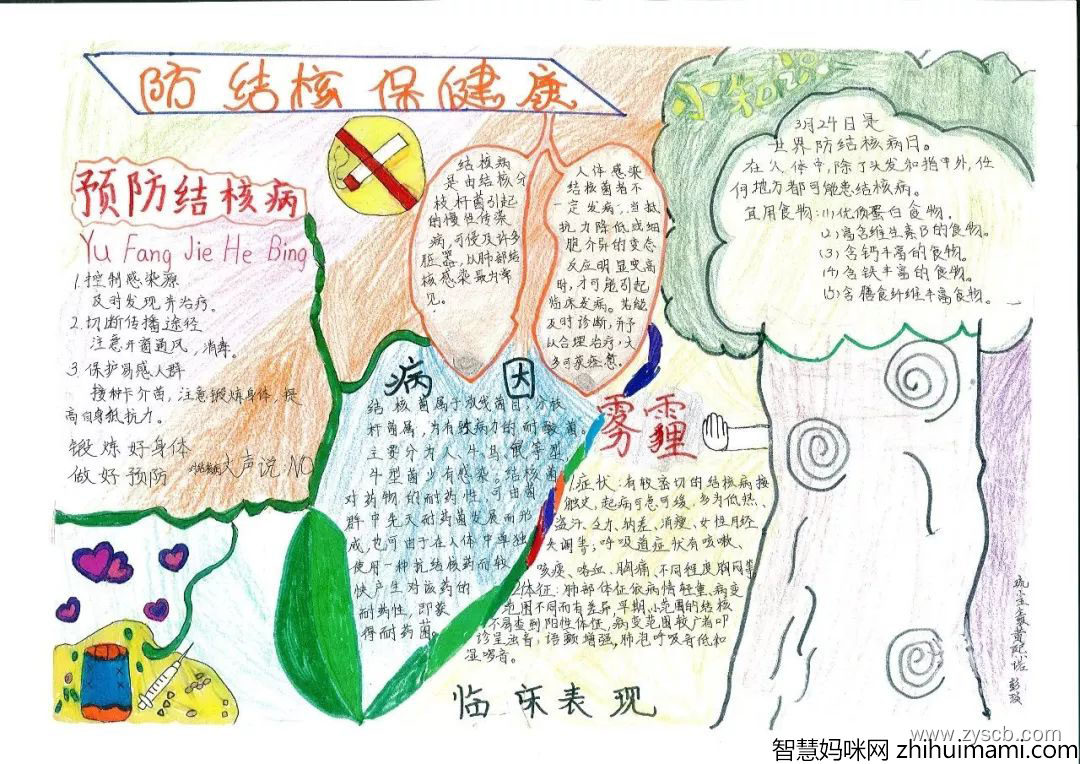 防结核保健康
预防结核病
Yu Fang Jie He Bing
1.控制感染源
及时发现并治疗。
2.切断传播途径
注意开窗通风,消毒。
3.保护易感人群
接种卡介苗,注意锻炼身体,提
高自身抵抗力。
锻炼好身体
做好预防
大声说NO
结核病
是由结核分
枝杆菌引起
的慢性传染
病,可侵及许多
脏器,以肺部结
核感染最为常
见。
人体感染
结核菌者不
一定发病,当抵
抗力降低或细
胞介导的变态
反应明显变高
时,才可能引起
临床发病。若能
及时诊断,并予
以合理治疗,大
多可获痊愈。
病因
结核菌属于放线菌目,分枝
杆菌属,为有致病力的耐酸菌。
主要分为人、牛、鸟、鼠等型
牛型菌少有感染。结核菌
对药物的耐药性,可由菌
群中先天耐药菌发展而形
成,也可由于在人体中单独
使用一种抗结核药而较
快产生对该药的
耐药性,即获
得耐药菌。
雾霾
1症状:有较密切的结核病接
触史,起病可急可缓,多为低热、
盗汗、乏力、纳差、消瘦、女性月经
失调等;呼吸道症状有咳嗽、
咳痰、咯血、胸痛、不同程度胸闷等
2体征:肺部体征依病情轻重、病变
范围不同而有差异,早期、小范围的结核
不易查到阳性体征,病变范围较广者叩
诊呈浊音,语颤增强,肺泡呼吸音低和
湿啰音。
临床表现
小知识
3月24日是
世界防结核病日。
在人体中,除了头发和指甲外,任
何地方都可能患结核病。
宜用食物:(1)优质蛋白食物。
(2)富含维生素B的食物。
(3)含钙丰富的食物。
(4)含铁丰富的食物。
(5)含膳食纤维丰富食物。
www.zyscb.com
智慧妈咪网 zhihuimami.com